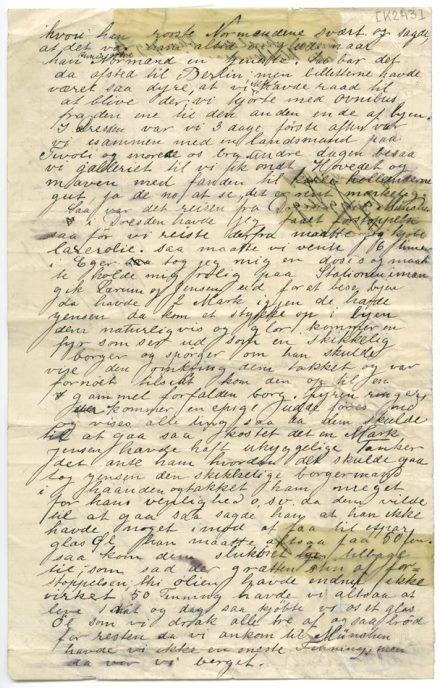 [K2A3]
hvori hen roste Normændene svært og sagde
at det var ham altid en glæde naar
han Normænd en tjeneste Saa bar det
da afsted til Berlin men billetterne havde
været saa dyre, at vi ikke havde raad til
at blive der, vi kjørte med Ovnibus
fra den ene til den anden ende af byen.
I Dresden var vi 3 dage, første aften var
vi sammen med en landsmand paa
Tivoli og morede os bra, andre dagen besaa
vi galleriet til vi fik ondt i Hovedet og
maven med fanden til
gut ja de no, at se det er rent
Saa var det reisen fra München
I Dresden havde jeg faaet forstoppelse
saa før vi reiste derfra maatte jeg kjøbe
lazerolie. saa maatte vi vente i 6 timer
i Eger saa tog jeg mig en dosis og maat
te holde mig rolig paa Stationen iman
gik Larum og Jensen ud for at bese byen
da havde 2 Mark igjen de havde
Jensen da kom et stykke op i byen
dem naturligvis og glor kommer en
fyr som ser ud som en skikkelig
borger og spørger om han skulde
vise dem omkring dem takket og var
fornøit tilsidst kom den op til en
gammel forfalden borg, fyren ringer,
kommer en pige ud de føres ind
og vises alle ting saa da dem skulde
til at gaa saa kostet det en Mark
Jensen havde havt uhyggelige Tanker
det ante ham hvordan det skulde gaa
tog Jensen den skikkelige borgermand
i haanden og takket ham meget
for hans venlighed o, s, v, da dem vilde
til at gaa saa sagde han at han ikke
havde noget imod at faa til et par
glas Øl han maatte afsted paa 50 for.
saa kom dem slukøret tilbage
til som sad der grætten af for-
stoppelsen thi olien havde endnu ikke
virket 50 Finning havde vi altsaa at
leve 1 nat og dag saa kjøbte vi os et glas
Øl som vi drak alle tre af og saa brød
for resten da vi ankom til München
havde vi ikke en eneste Finning, men
da var vi berget.